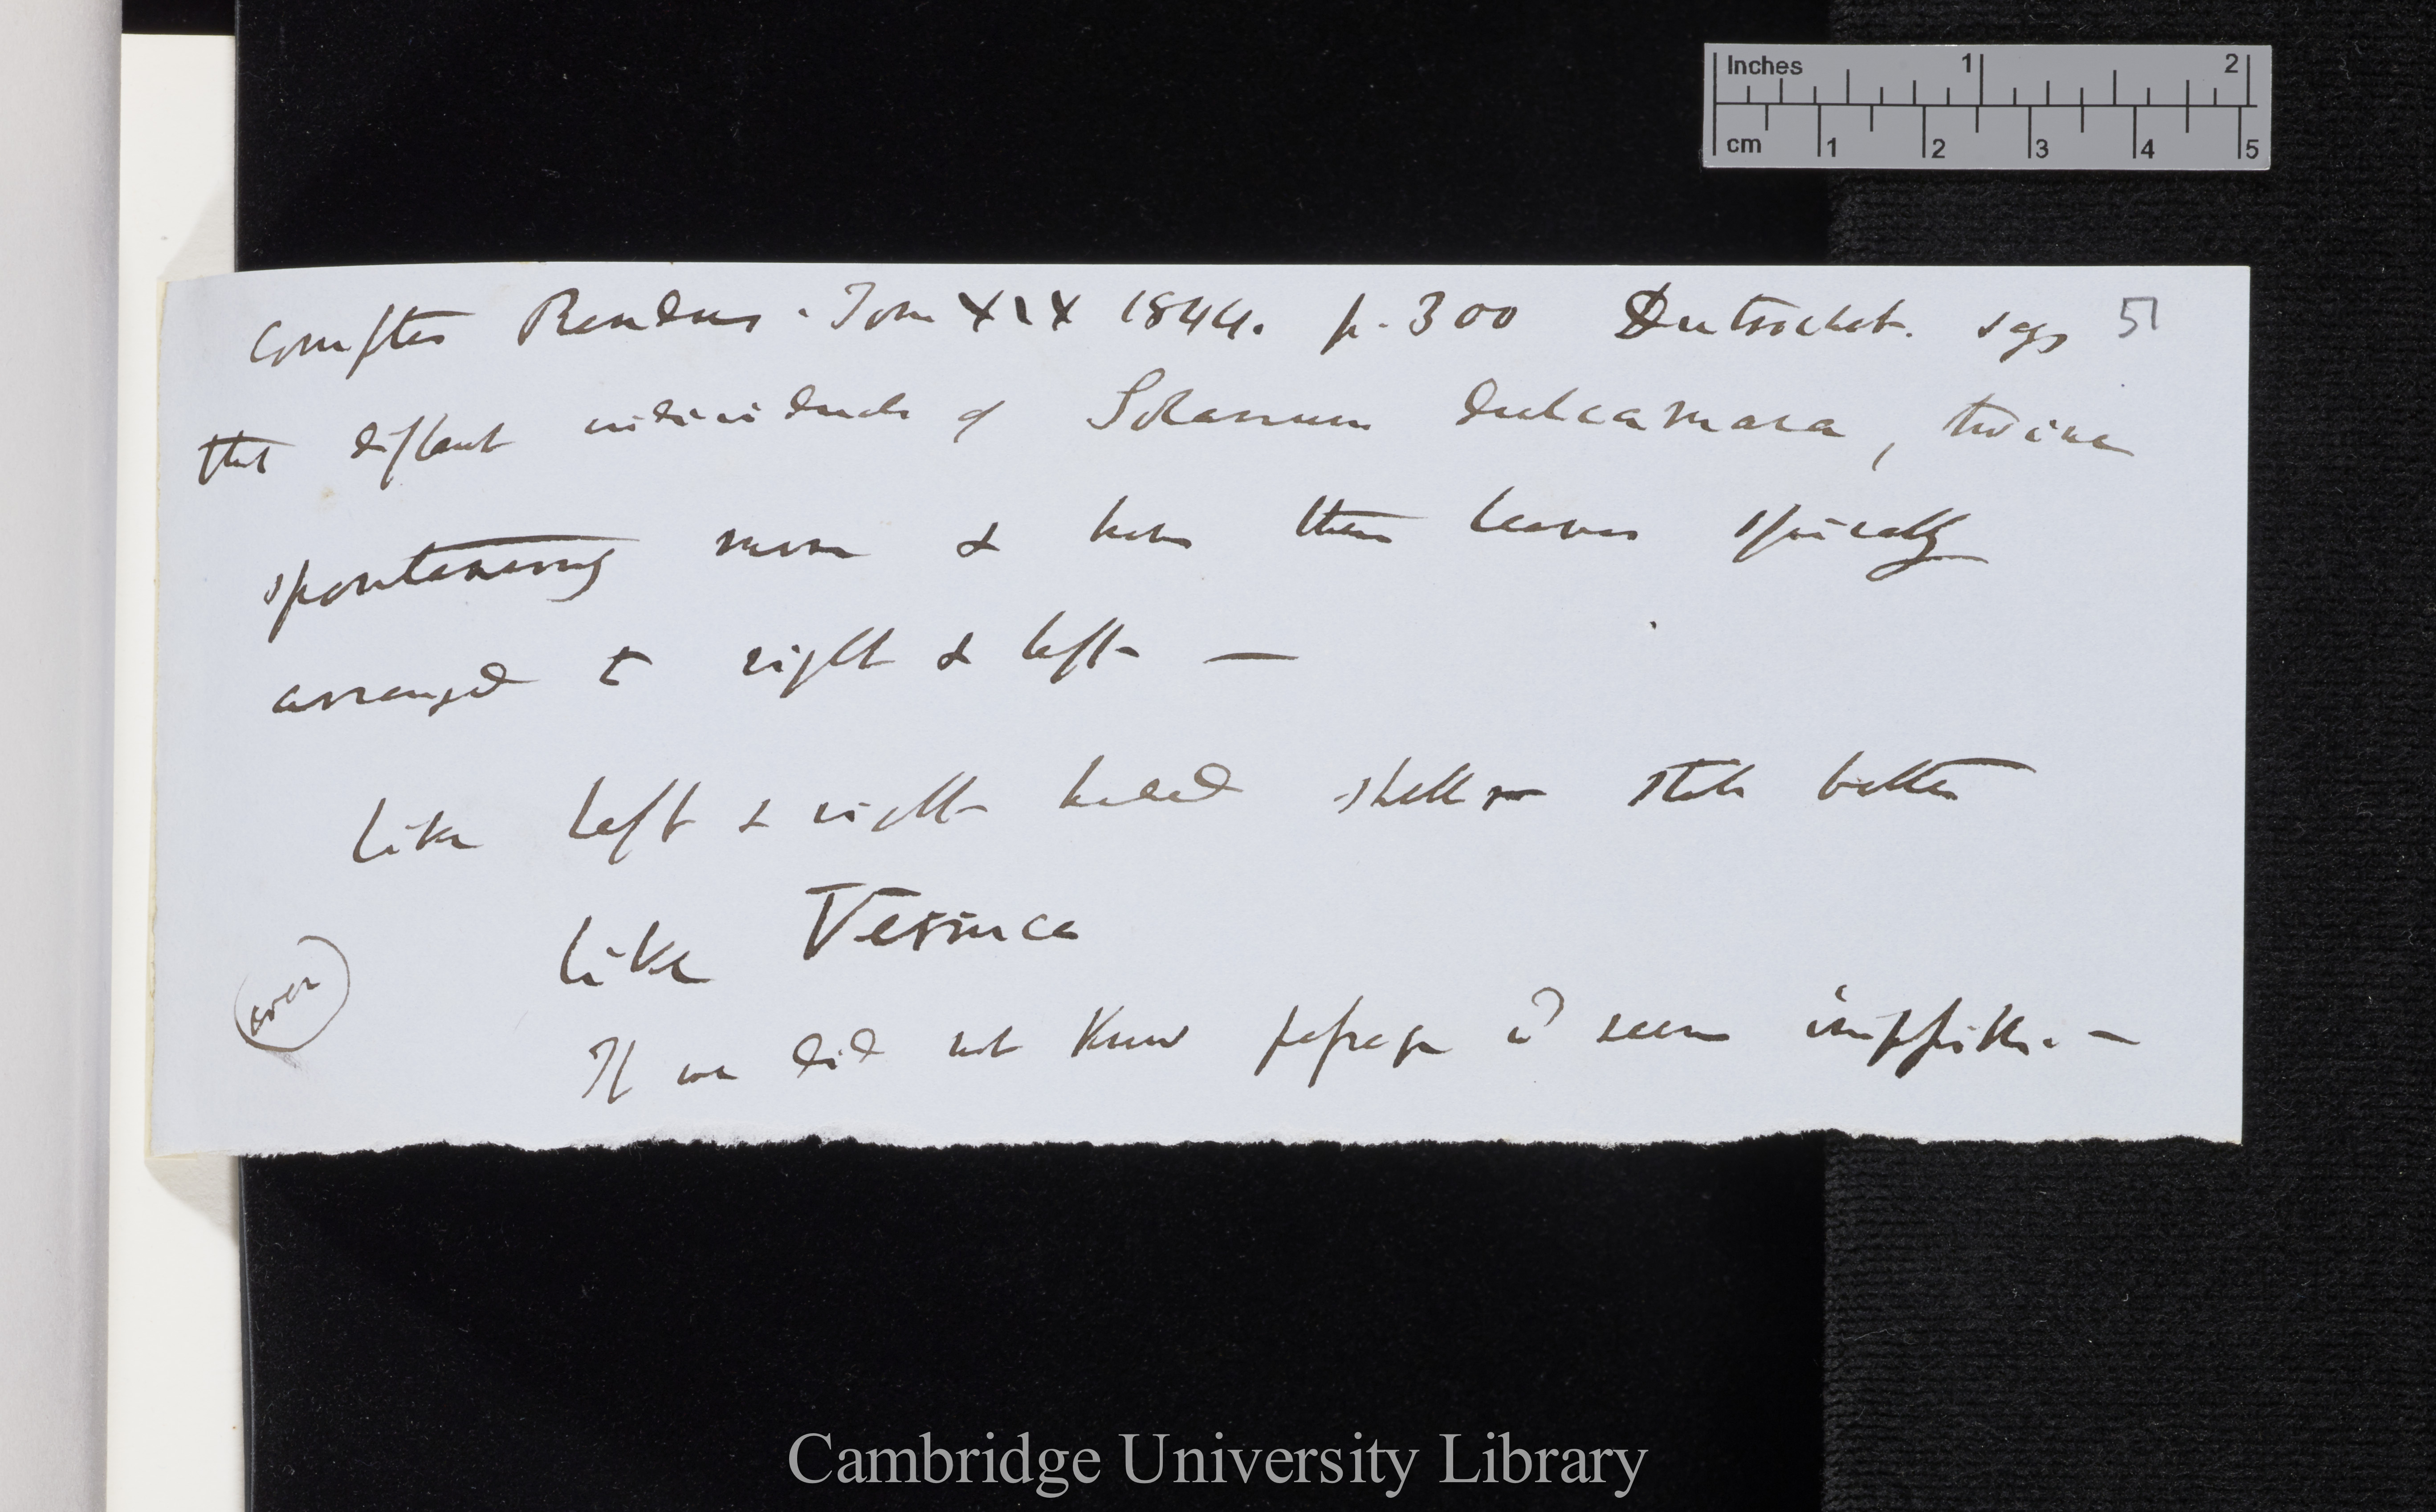 Inches 1 2
cm 1 2 3 4 5
Comptes Rendus. Tom XIX 1844. p. 300 Dutrochet. says 51
that different individuals of Solanum dulcamara, twine
spontaneously move & have their leaves spirally
arranged to right & left —
Like left & right handed shells state better
like Veronica
(over)
If we did not know passage wd seem impossible. —
Cambridge University Library